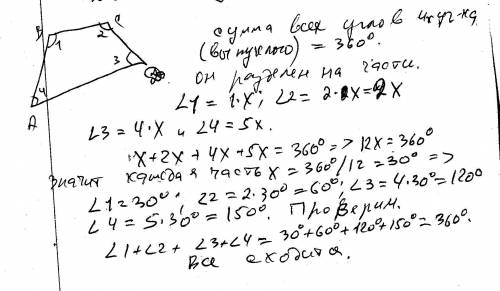 B C
1 2
3
4
A
сумма всех углов
(выпуклого) = 360°.
он разделен на части.
∠1 = 1·x; ∠2 = 2·x = 2x
∠3 = 4·x и ∠4 = 5x.
x + 2x + 4x + 5x = 360° => 12x = 360°
значит каждая часть x = 360°/12 = 30° =>
∠1 = 30°; ∠2 = 2·30° = 60°; ∠3 = 4·30° = 120°
∠4 = 5·30° = 150°. Проверим.
∠1 + ∠2 + ∠3 + ∠4 = 30° + 60° + 120° + 150° = 360°.
Все сходится.